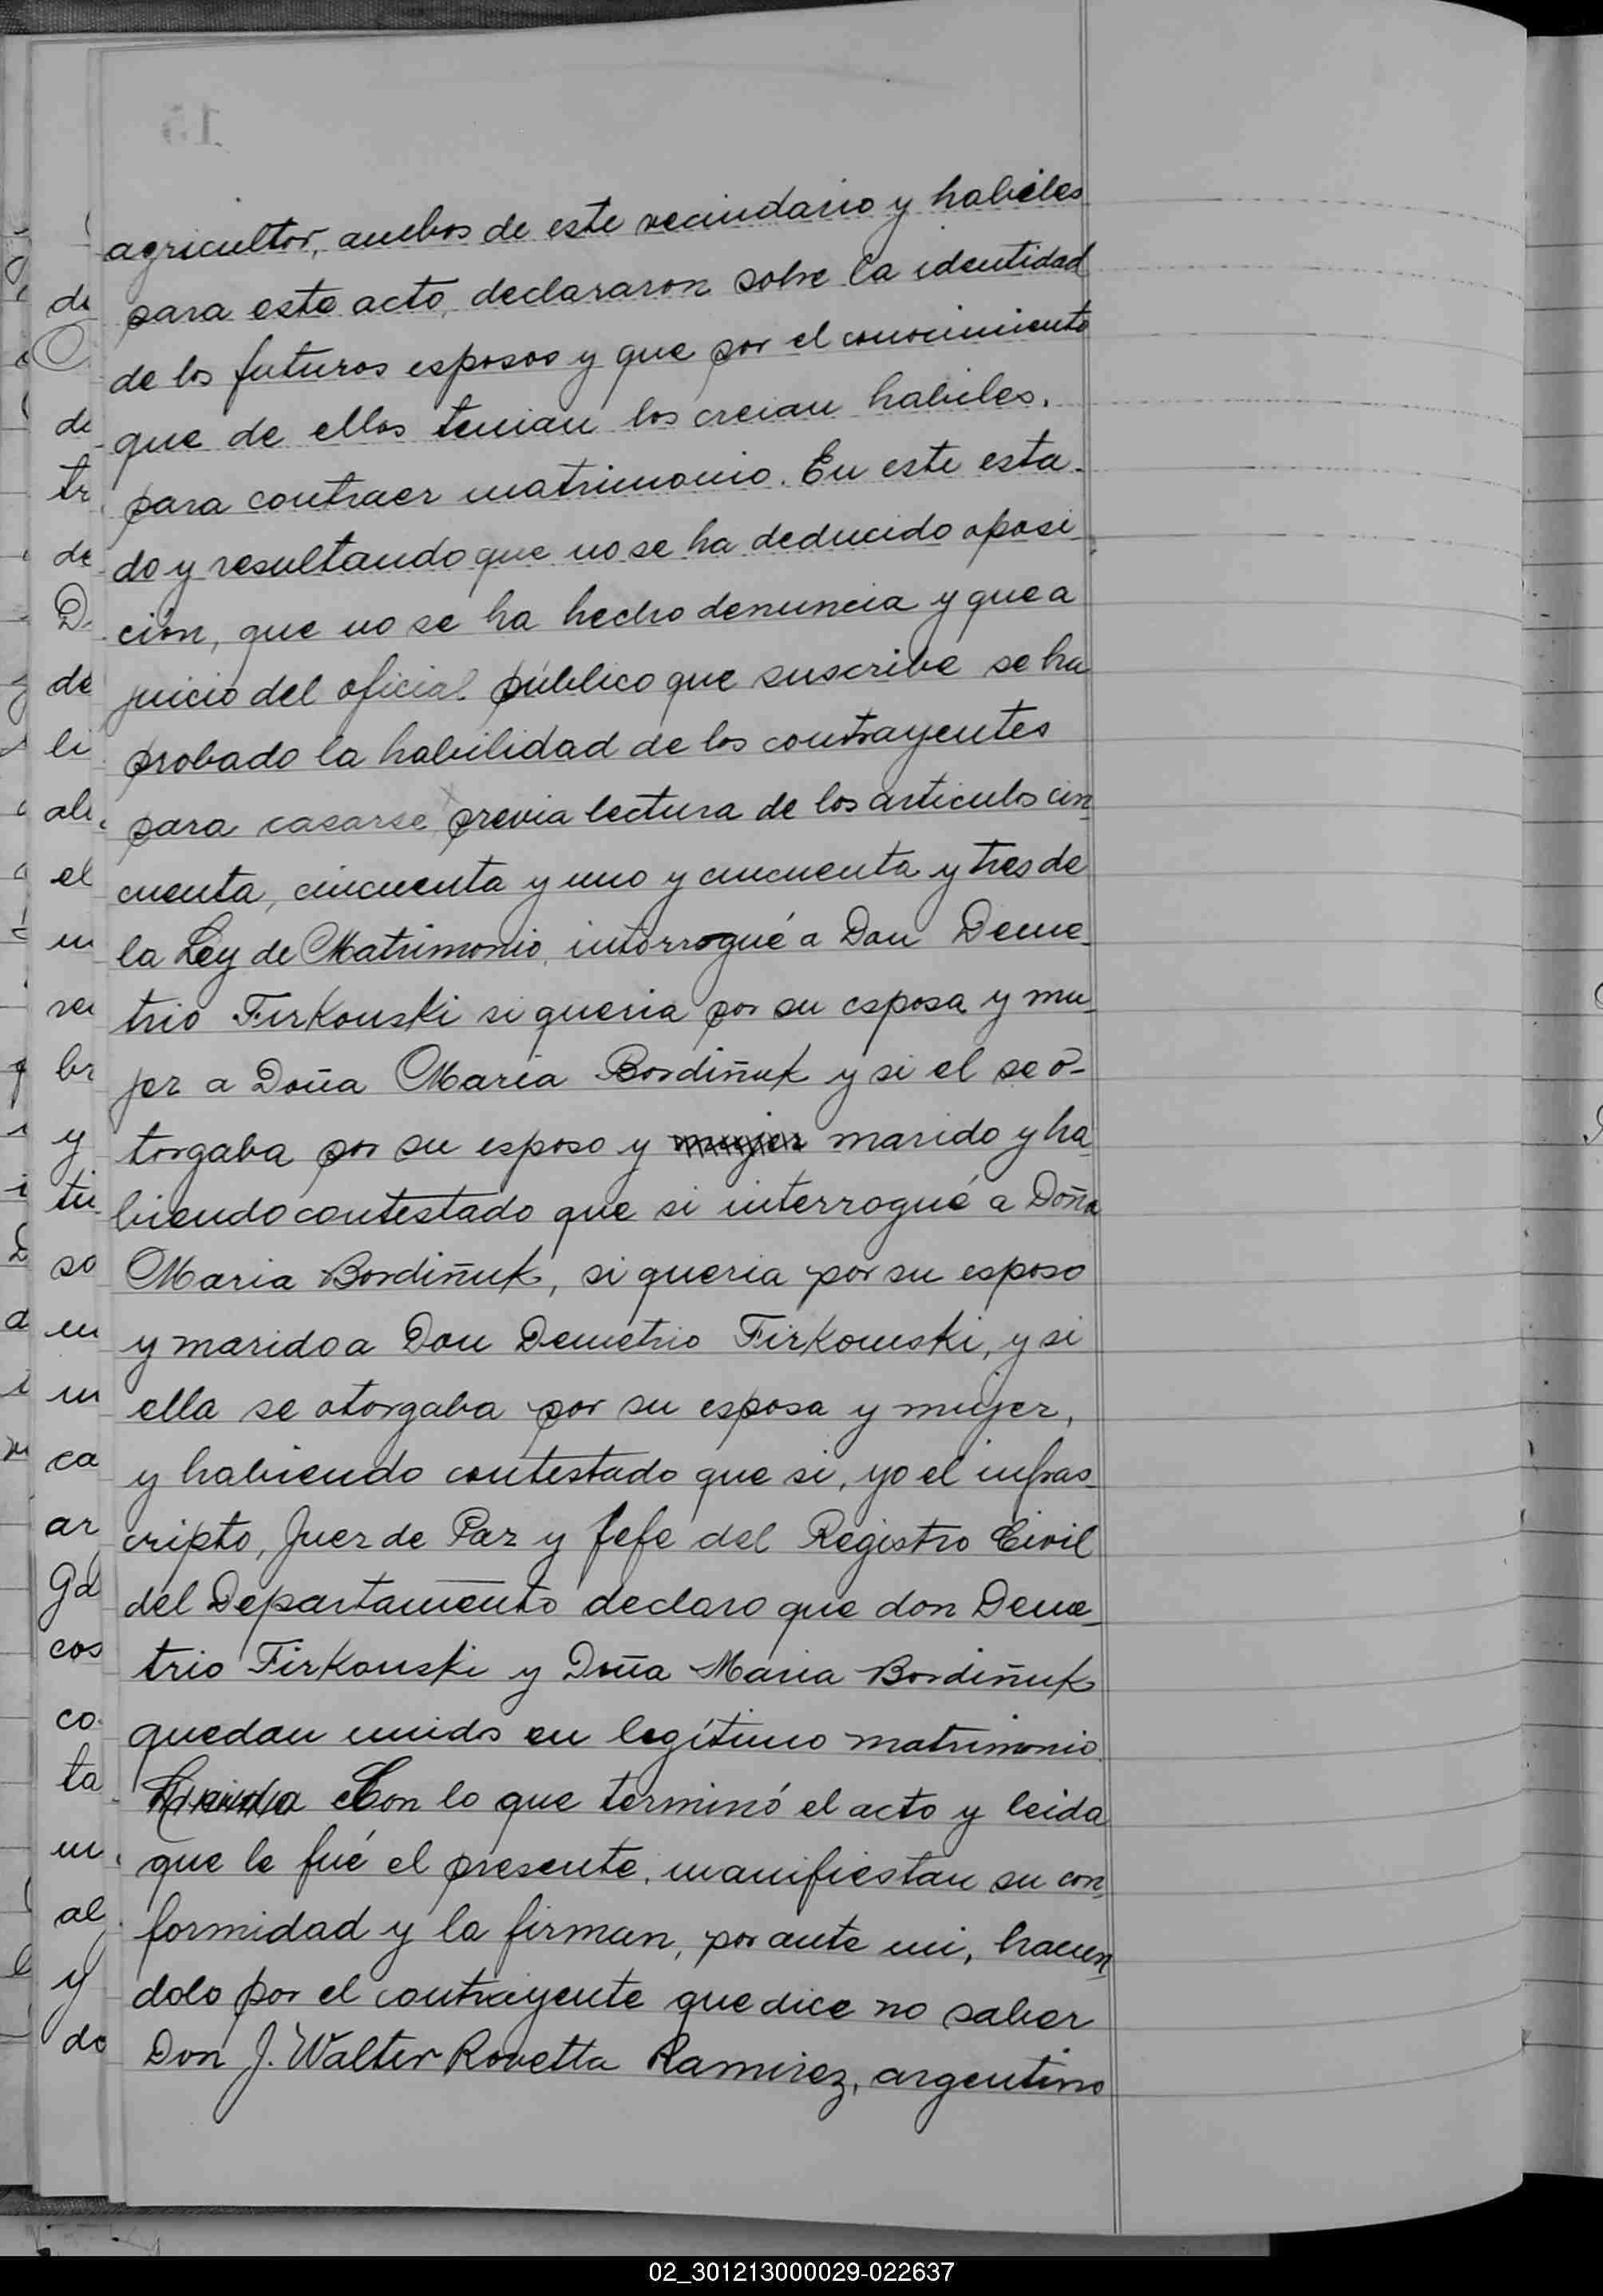 agricultor, ambos de este vecindario y habiles
para este acto, declararon sobre la identidad
de los futuros esposos y que por el conocimiento
que de ellos tenian los creian habiles.
para contraer matrimonio. En este esta-
do y resultando que no se ha deducido oposi-
ción, que no se ha hecho denuncia y que a
juicio del oficial público que suscribe se ha
probado la habilidad de los contrayentes
para casarse, previa lectura de los articulos cin-
cuenta, cincuenta y uno y cincuenta y tres de
la Ley de Matrimonio, interrogué a Don Deme-
trio Firkouski si queria por su esposa y mu-
jer a Doña Maria Bordiñuk y si el se o-
torgaba por su esposo y mujer marido y ha-
biendo contestado que si interrogué a Doña
Maria Bordiñuk, si queria por su esposo
y marido a Don Demetrio Firkowski, y si
ella se otorgaba por su esposa y mujer,
y habiendo contestado que si, yo el infras-
cripto, Juez de Paz y Jefe del Registro Civil
del Departamento declaro que don Deme-
trio Firkouski y Doña Maria Bordiñuk
quedan unidos en legítimo matrimonio.
Con lo que terminó el acto y leida
que le fué el presente, manifiestan su con-
formidad y la firman, por ante mi, hacien-
dolo por el contrayente que dice no saber
Don J. Walter Rovetta Ramirez, argentino
02_301213000029-022637